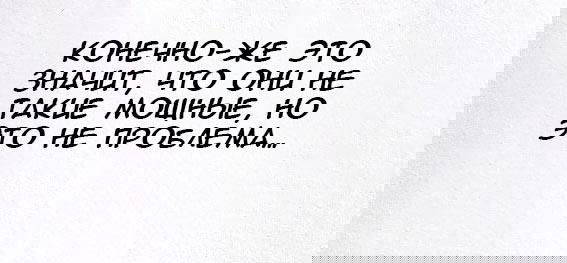 КОНЕЧНО-ЖЕ ЭТО
ЗНАЧИТ, ЧТО ОНИ НЕ
ТАКИЕ МОЩНЫЕ, НО
ЭТО НЕ ПРОБЛЕМА...